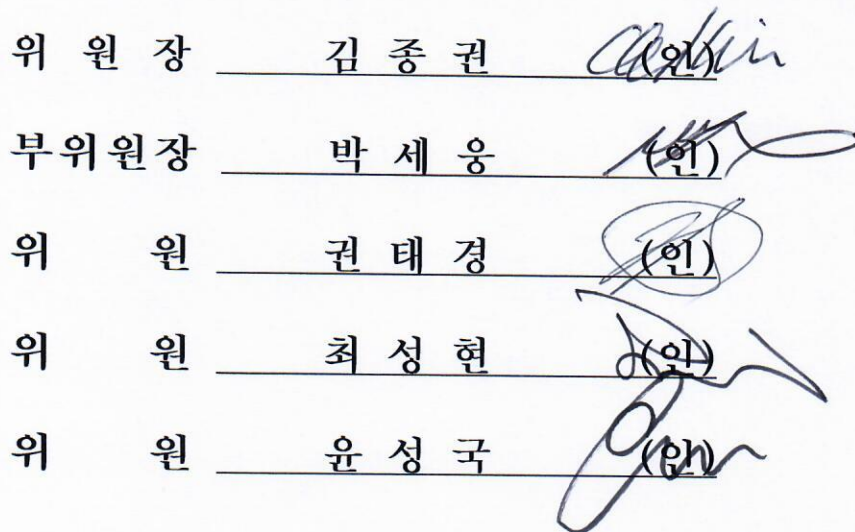 위 원 장 김 종 권 (인)
부위원장 박 세 웅 (인)
위 원 권 태 경 (인)
위 원 최 성 현 (인)
위 원 윤 성 국 (인)